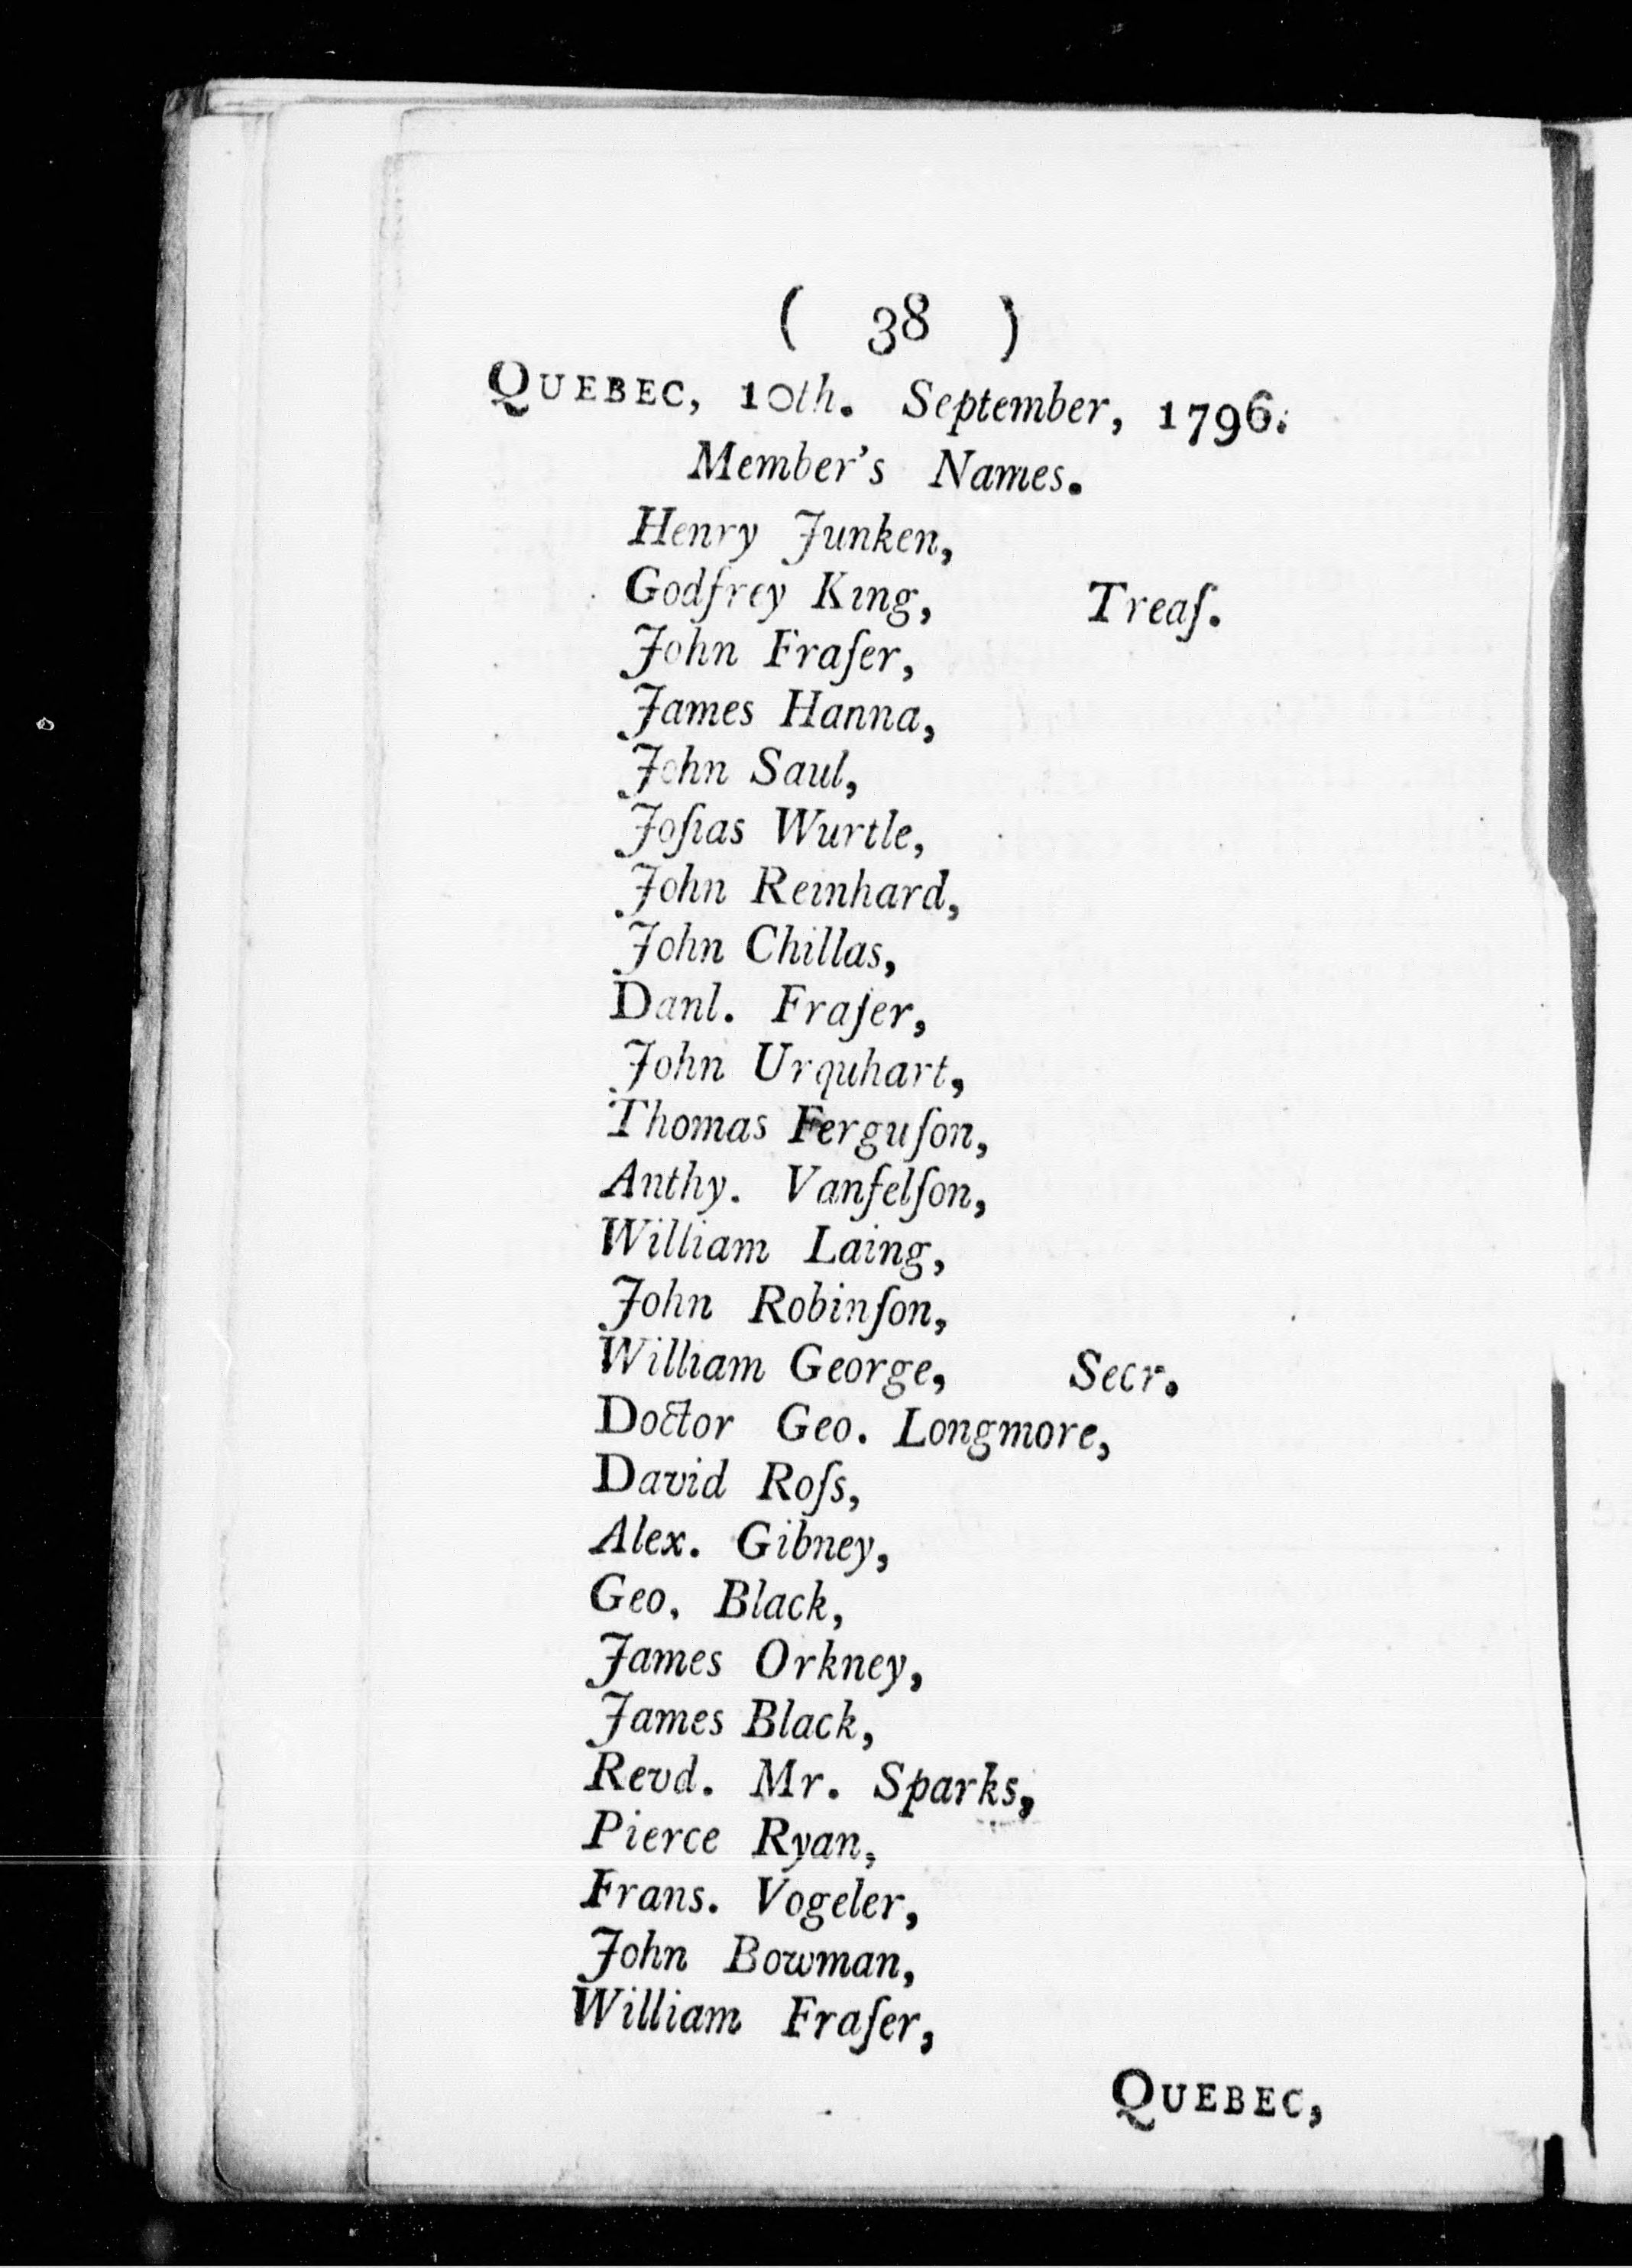 ( 38 )
QUEBEC, 10th. September, 1796.
Member's Names.
Henry Junken,
Godfrey King, Treaſ.
John Fraſer,
James Hanna,
John Saul,
Joſias Wurtle,
John Reinhard,
John Chillas,
Danl. Fraſer,
John Urquhart,
Thomas Ferguſon,
Anthy. Vanfelſon,
William Laing,
John Robinſon,
William George, Secr.
Doctor Geo. Longmore,
David Roſs,
Alex. Gibney,
Geo. Black,
James Orkney,
James Black,
Revd. Mr. Sparks,
Pierce Ryan,
Frans. Vogeler,
John Bowman,
William Fraſer,
QUEBEC,